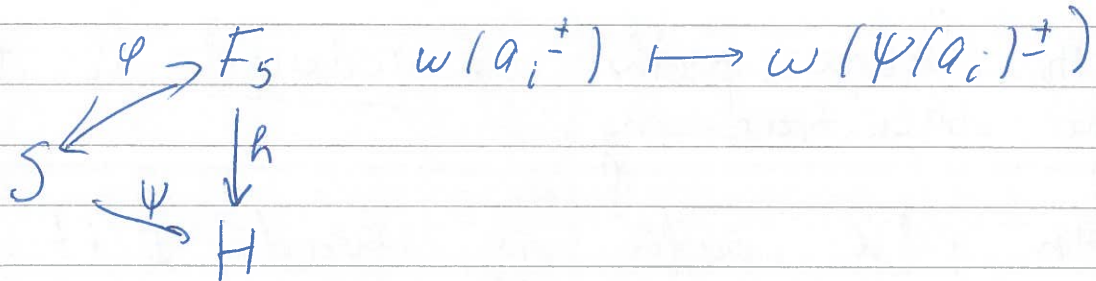 φ F_S w(a_i^±) ⟼ w(ψ(a_i)^±)
S h
ψ
H